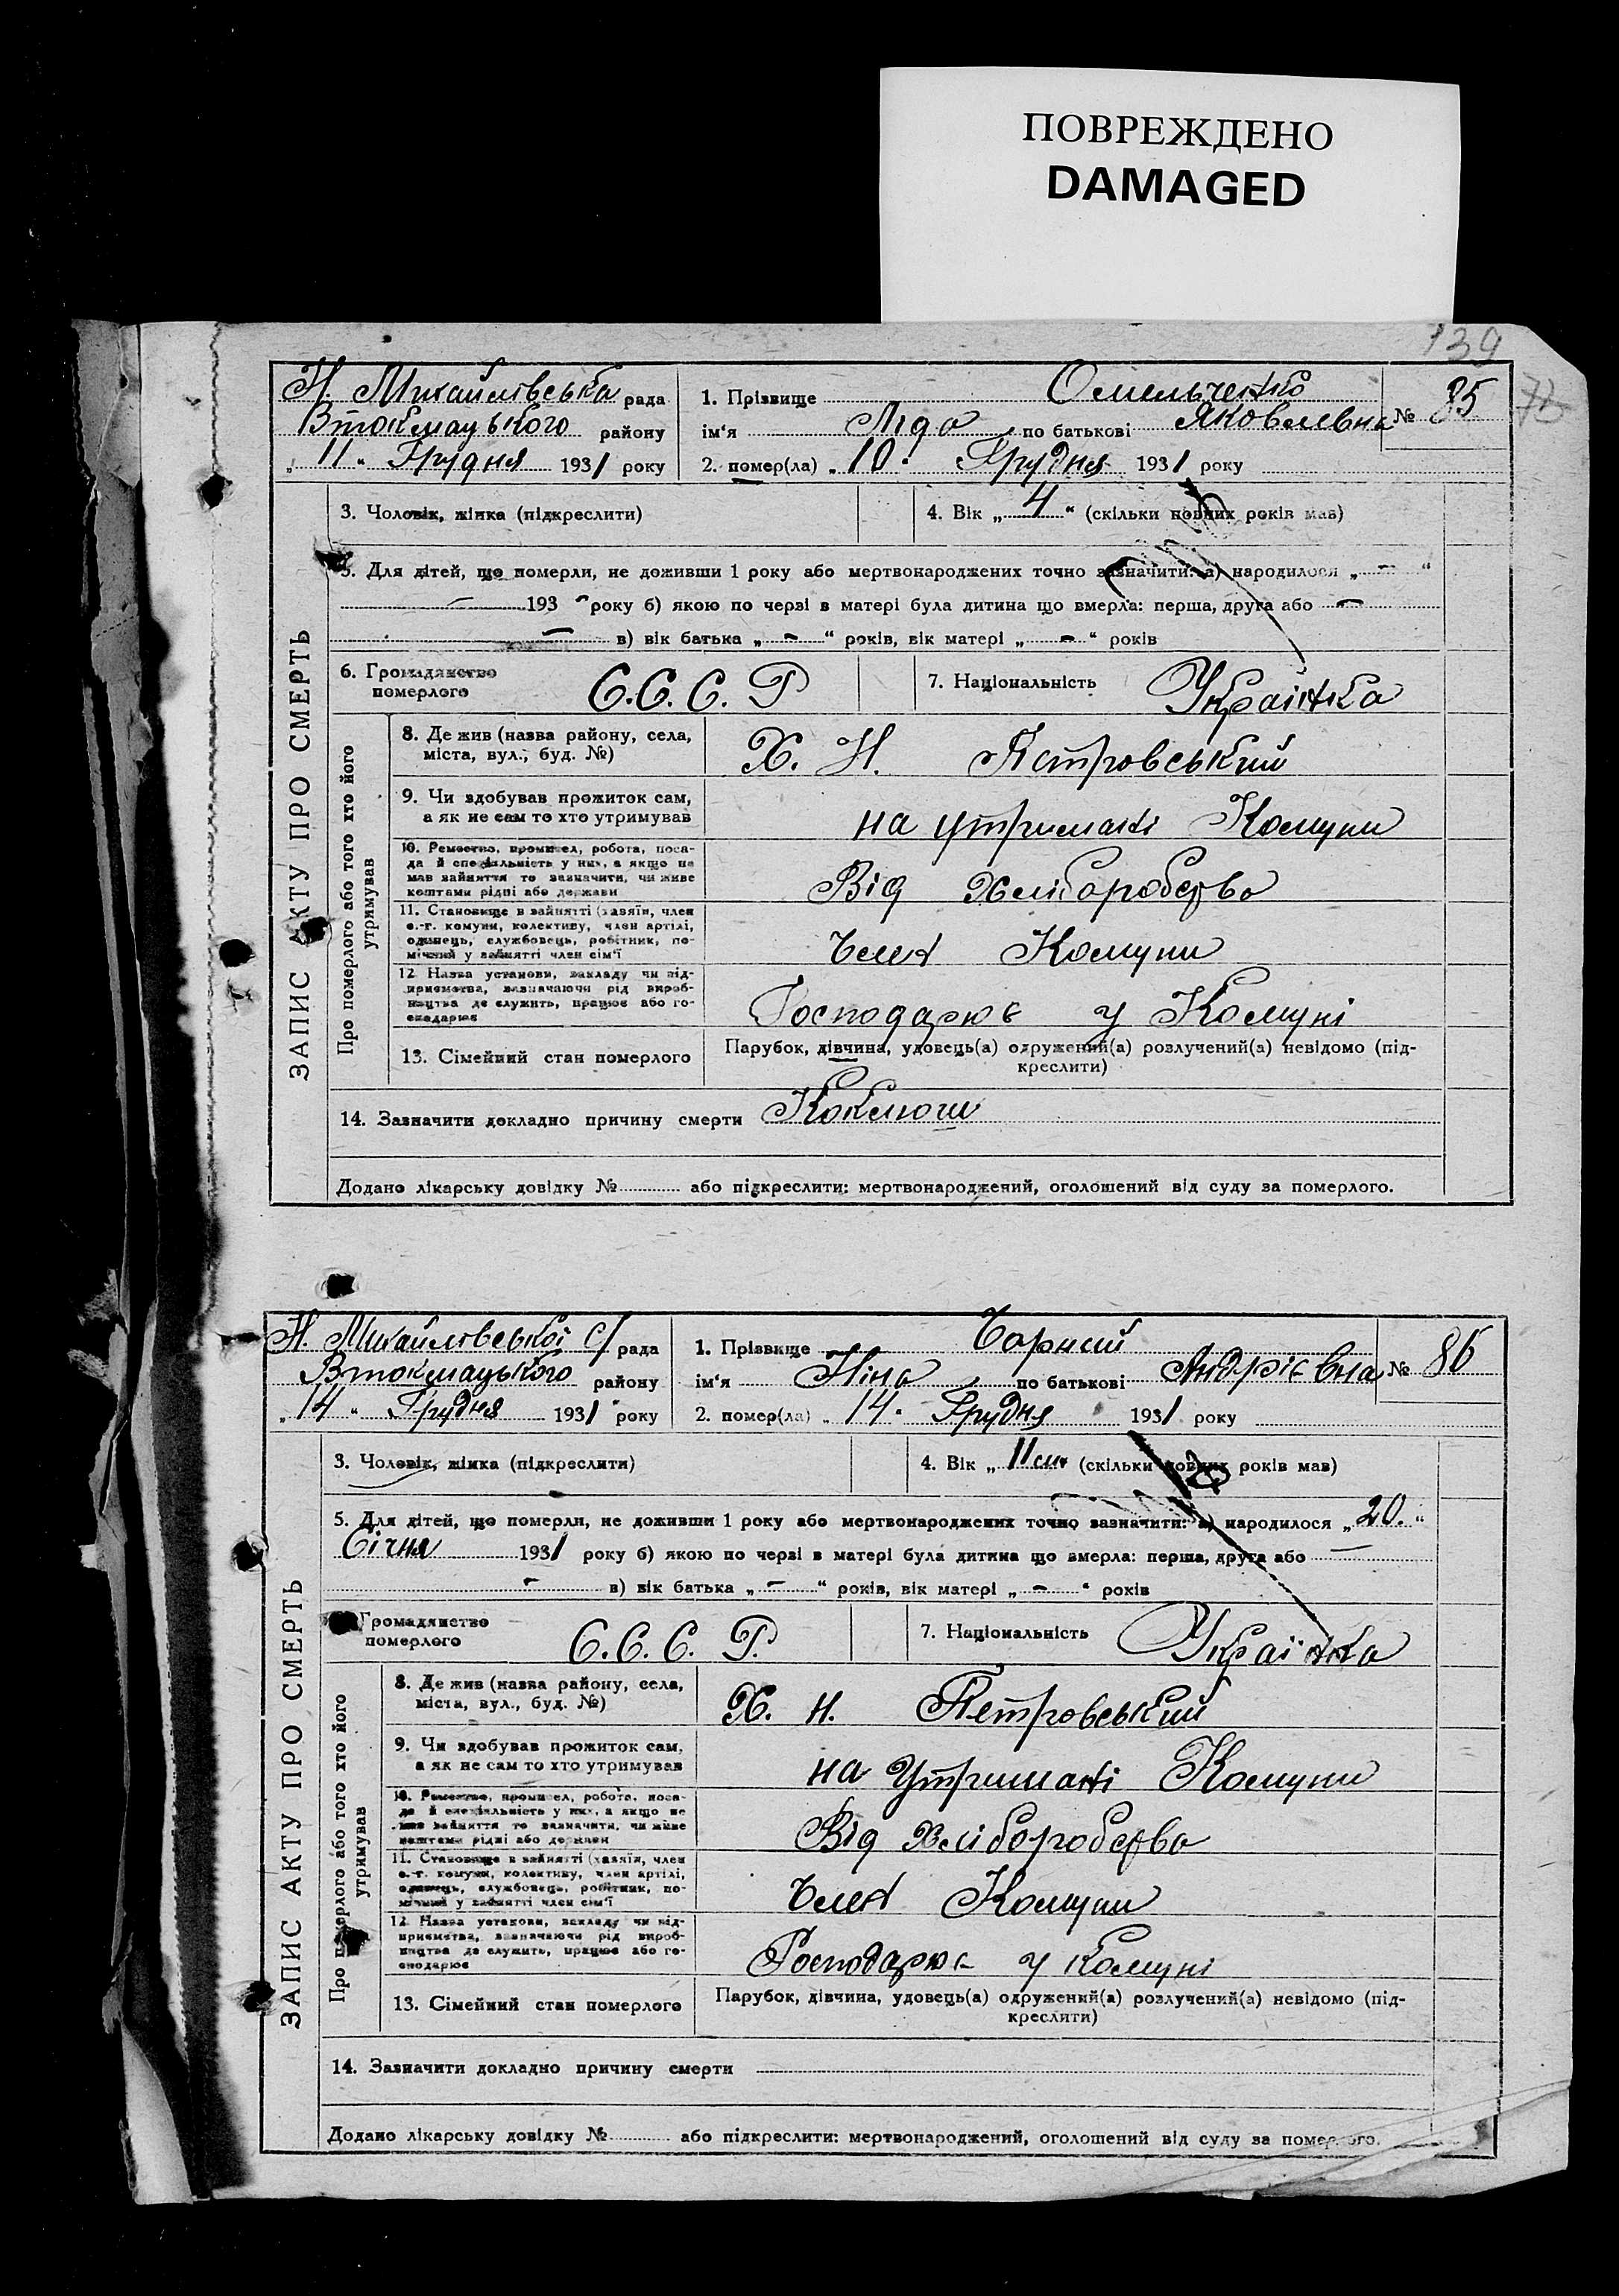 ПОВРЕЖДЕНО
DAMAGED
139
Н. Михайлівська рада
Втокмацького району
„11“ Грудня 1931 року
1. Прізвище Омельченко
ім‘я Ліда по батькові Яковлевна
№ 85
2. помер(ла) „10. Грудня 1931 року
3. Чоловік, жінка (підкреслити)
4. Вік „4“ (скільки повних років мав)
5. Для дітей, що померли, не доживши 1 року або мертвонароджених точно зазначити: а) народилося „-“
- 193 - року б) якою по черзі в матері була дитина що вмерла: перша, друга або -
- в) вік батька „-“ років, вік матері „-“ років
6. Громадянство
померлого
С.С.С.Р
7. Національність Українка
ЗАПИС АКТУ ПРО СМЕРТЬ
Про померлого або того хто його
утримував
8. Де жив (назва району, села,
міста, вул., буд. №)
Х. Н. Петровський
9. Чи здобував прожиток сам,
а як не сам то хто утримував
на утримані Комуни
10. Ремество, промисел, робота, поса-
да й спеціяльність у них, а якщо не
мав зайняття то зазначити, чи живе
коштами рідні або держави
Від Хліборобства
11. Становище в зайнятті (хазяїн, член
с.-г. комуни, колективу, член артілі,
одинець, службовець, робітник, по-
мічний у зайнятті член сім‘ї
Член Комуни
12. Назва установи, закладу чи під-
приємства, зазначаючи рід вироб-
ництва де служить, працює або го-
сподарює
Господарює у Комуні
13. Сімейний стан померлого
Парубок, дівчина, удовець(а) одружений(а) розлучений(а) невідомо (під-
креслити)
14. Зазначити докладно причину смерти Коклюш
Додано лікарську довідку № або підкреслити: мертвонароджений, оголошений від суду за померлого.
Н. Михайлівської с/рада
Втокмацького району
„14“ Грудня 1931 року
1. Прізвище Чорний
ім‘я Ніна по батькові Андрієвна
№ 86
2. помер(ла) „14. Грудня 1931 року
3. Чоловік, жінка (підкреслити)
4. Вік „11 м. (скільки повних років мав)
5. Для дітей, що померли, не доживши 1 року або мертвонароджених точно зазначити: а) народилося „20.“
Січня 1931 року б) якою по черзі в матері була дитина що вмерла: перша, друга або -
- в) вік батька „-“ років, вік матері „-“ років
Громадянство
померлого
С.С.С.Р.
7. Національність Українка
ЗАПИС АКТУ ПРО СМЕРТЬ
Про померлого або того хто його
утримував
8. Де жив (назва району, села,
міста, вул., буд. №)
Х. Н. Петровський
9. Чи здобував прожиток сам,
а як не сам то хто утримував
на Утримані Комуни
10. Ремество, промисел, робота, поса-
да й спеціяльність у них, а якщо не
мав зайняття то зазначити, чи живе
коштами рідні або держави
Від Хліборобства
11. Становище в зайнятті (хазяїн, член
с.-г. комуни, колективу, член артілі,
одинець, службовець, робітник, по-
мічний у зайнятті член сім‘ї
Член Комуни
12. Назва установи, закладу чи під-
приємства, зазначаючи рід вироб-
ництва де служить, працює або го-
сподарює
Господарює у комуні
13. Сімейний стан померлого
Парубок, дівчина, удовець(а) одружений(а) розлучений(а) невідомо (під-
креслити)
14. Зазначити докладно причину смерти
Додано лікарську довідку № або підкреслити: мертвонароджений, оголошений від суду за померлого.